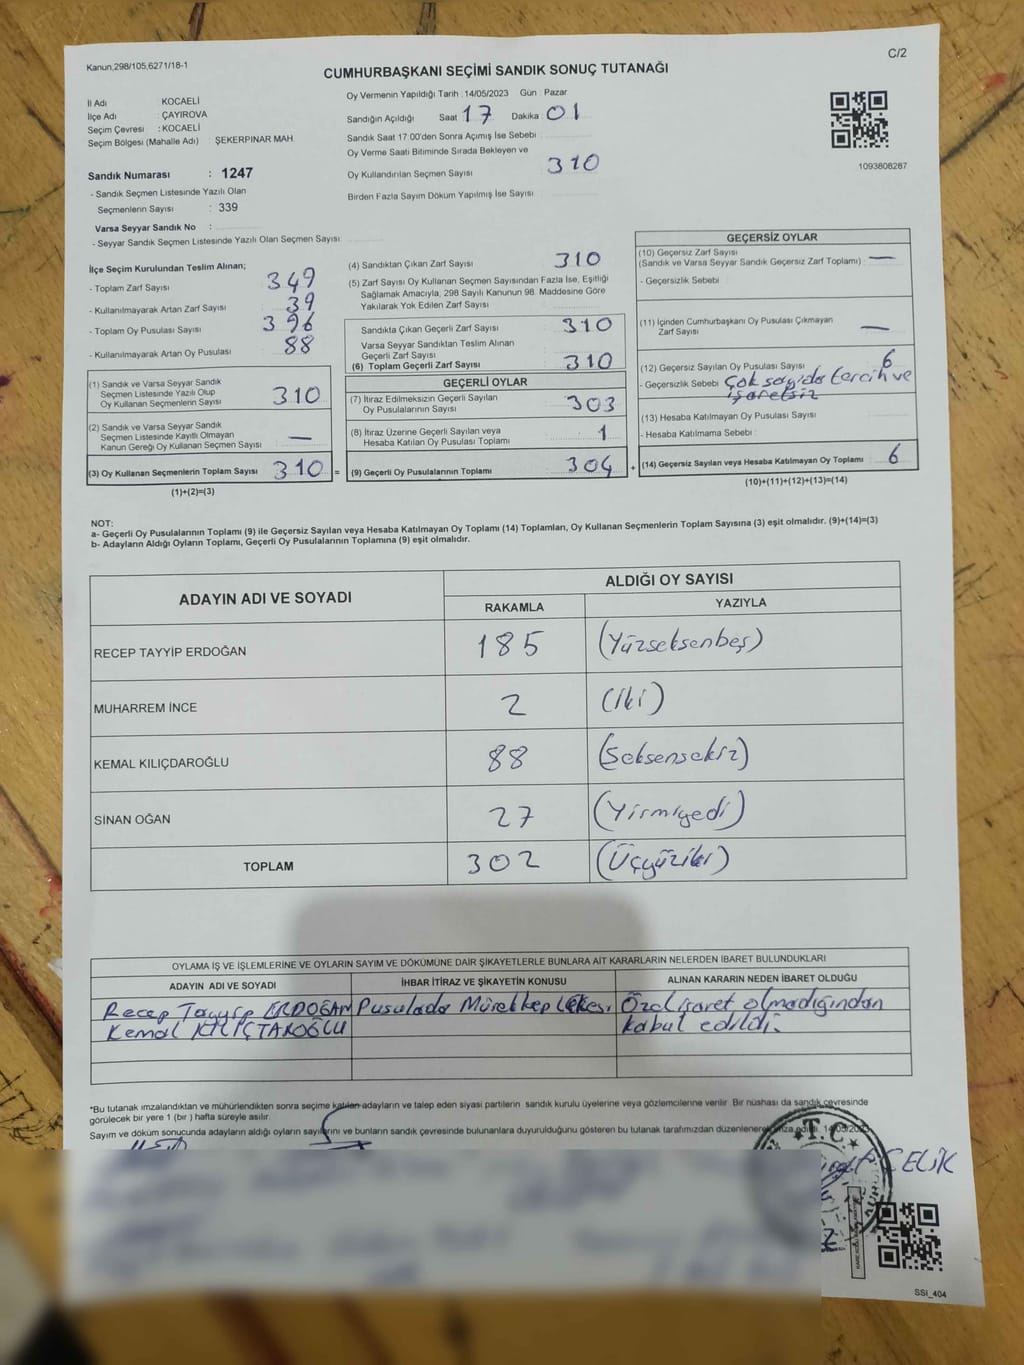 Kanun,298/105,6271/18-1
C/2
CUMHURBAŞKANI SEÇİMİ SANDIK SONUÇ TUTANAĞI
İl Adı : KOCAELİ
İlçe Adı : ÇAYIROVA
Seçim Çevresi : KOCAELİ
Seçim Bölgesi (Mahalle Adı) ŞEKERPINAR MAH.
Sandık Numarası : 1247
- Sandık Seçmen Listesinde Yazılı Olan
Seçmenlerin Sayısı : 339
Varsa Seyyar Sandık No :
- Seyyar Sandık Seçmen Listesinde Yazılı Olan Seçmen Sayısı:
Oy Vermenin Yapıldığı Tarih : 14/05/2023 Gün : Pazar
Sandığın Açıldığı Saat 17 Dakika 01
Sandık Saat 17:00'den Sonra Açımış İse Sebebi :
Oy Verme Saati Bitiminde Sırada Bekleyen ve
Oy Kullandırılan Seçmen Sayısı : 310
Birden Fazla Sayım Döküm Yapılmış İse Sayısı :
1093808287
İlçe Seçim Kurulundan Teslim Alınan;
- Toplam Zarf Sayısı : 349
- Kullanılmayarak Artan Zarf Sayısı : 39
- Toplam Oy Pusulası Sayısı : 396
- Kullanılmayarak Artan Oy Pusulası : 88
(1) Sandık ve Varsa Seyyar Sandık
Seçmen Listesinde Yazılı Olup
Oy Kullanan Seçmenlerin Sayısı : 310
(2) Sandık ve Varsa Seyyar Sandık
Seçmen Listesinde Kayıtlı Olmayan
Kanun Gereği Oy Kullanan Seçmen Sayısı : —
(3) Oy Kullanan Seçmenlerin Toplam Sayısı : 310 =
(1)+(2)=(3)
(4) Sandıktan Çıkan Zarf Sayısı : 310
(5) Zarf Sayısı Oy Kullanan Seçmen Sayısından Fazla İse, Eşitliği
Sağlamak Amacıyla, 298 Sayılı Kanunun 98. Maddesine Göre
Yakılarak Yok Edilen Zarf Sayısı :
Sandıkta Çıkan Geçerli Zarf Sayısı : 310
Varsa Seyyar Sandıktan Teslim Alınan
Geçerli Zarf Sayısı :
(6) Toplam Geçerli Zarf Sayısı : 310
GEÇERLİ OYLAR
(7) İtiraz Edilmeksizin Geçerli Sayılan
Oy Pusulalarının Sayısı : 303
(8) İtiraz Üzerine Geçerli Sayılan veya
Hesaba Katılan Oy Pusulası Toplamı : 1
(9) Geçerli Oy Pusulalarının Toplamı : 304 +
GEÇERSİZ OYLAR
(10) Geçersiz Zarf Sayısı
(Sandık ve Varsa Seyyar Sandık Geçersiz Zarf Toplamı) : —
- Geçersizlik Sebebi :
(11) İçinden Cumhurbaşkanı Oy Pusulası Çıkmayan
Zarf Sayısı : —
(12) Geçersiz Sayılan Oy Pusulası Sayısı : 6
- Geçersizlik Sebebi : Çok sayıda tercih ve
işaretsiz
(13) Hesaba Katılmayan Oy Pusulası Sayısı :
- Hesaba Katılmama Sebebi :
(14) Geçersiz Sayılan veya Hesaba Katılmayan Oy Toplamı : 6
(10)+(11)+(12)+(13)=(14)
NOT:
a- Geçerli Oy Pusulalarının Toplamı (9) ile Geçersiz Sayılan veya Hesaba Katılmayan Oy Toplamı (14) Toplamları, Oy Kullanan Seçmenlerin Toplam Sayısına (3) eşit olmalıdır. (9)+(14)=(3)
b- Adayların Aldığı Oyların Toplamı, Geçerli Oy Pusulalarının Toplamına (9) eşit olmalıdır.
ADAYIN ADI VE SOYADI
ALDIĞI OY SAYISI
RAKAMLA YAZIYLA
RECEP TAYYİP ERDOĞAN 185 (Yüzseksenbeş)
MUHARREM İNCE 2 (İki)
KEMAL KILIÇDAROĞLU 88 (Seksensekiz)
SİNAN OĞAN 27 (Yirmiyedi)
TOPLAM 302 (Üçyüziki)
OYLAMA İŞ VE İŞLEMLERİNE VE OYLARIN SAYIM VE DÖKÜMÜNE DAİR ŞİKAYETLERLE BUNLARA AİT KARARLARIN NELERDEN İBARET BULUNDUKLARI
ADAYIN ADI VE SOYADI İHBAR İTİRAZ VE ŞİKAYETİN KONUSU ALINAN KARARIN NEDEN İBARET OLDUĞU
Recep Tayyip ERDOĞAN Pusulada Mürekkep Lekesi Özel işaret olmadığından
Kemal KILIÇTAROĞLU kabul edildi.
*Bu tutanak imzalandıktan ve mühürlendikten sonra seçime katılan adayların ve talep eden siyasi partilerin sandık kurulu üyelerine veya gözlemcilerine verilir. Bir nüshası da sandık çevresinde
görülecek bir yere 1 (bir ) hafta süreyle asılır.
Sayım ve döküm sonucunda adayların aldığı oyların sayılarını ve bunların sandık çevresinde bulunanlara duyurulduğunu gösteren bu tutanak tarafımızdan düzenlenerek imza edildi. 14/05/2023
T.C.
ÇELİK
SSI_404